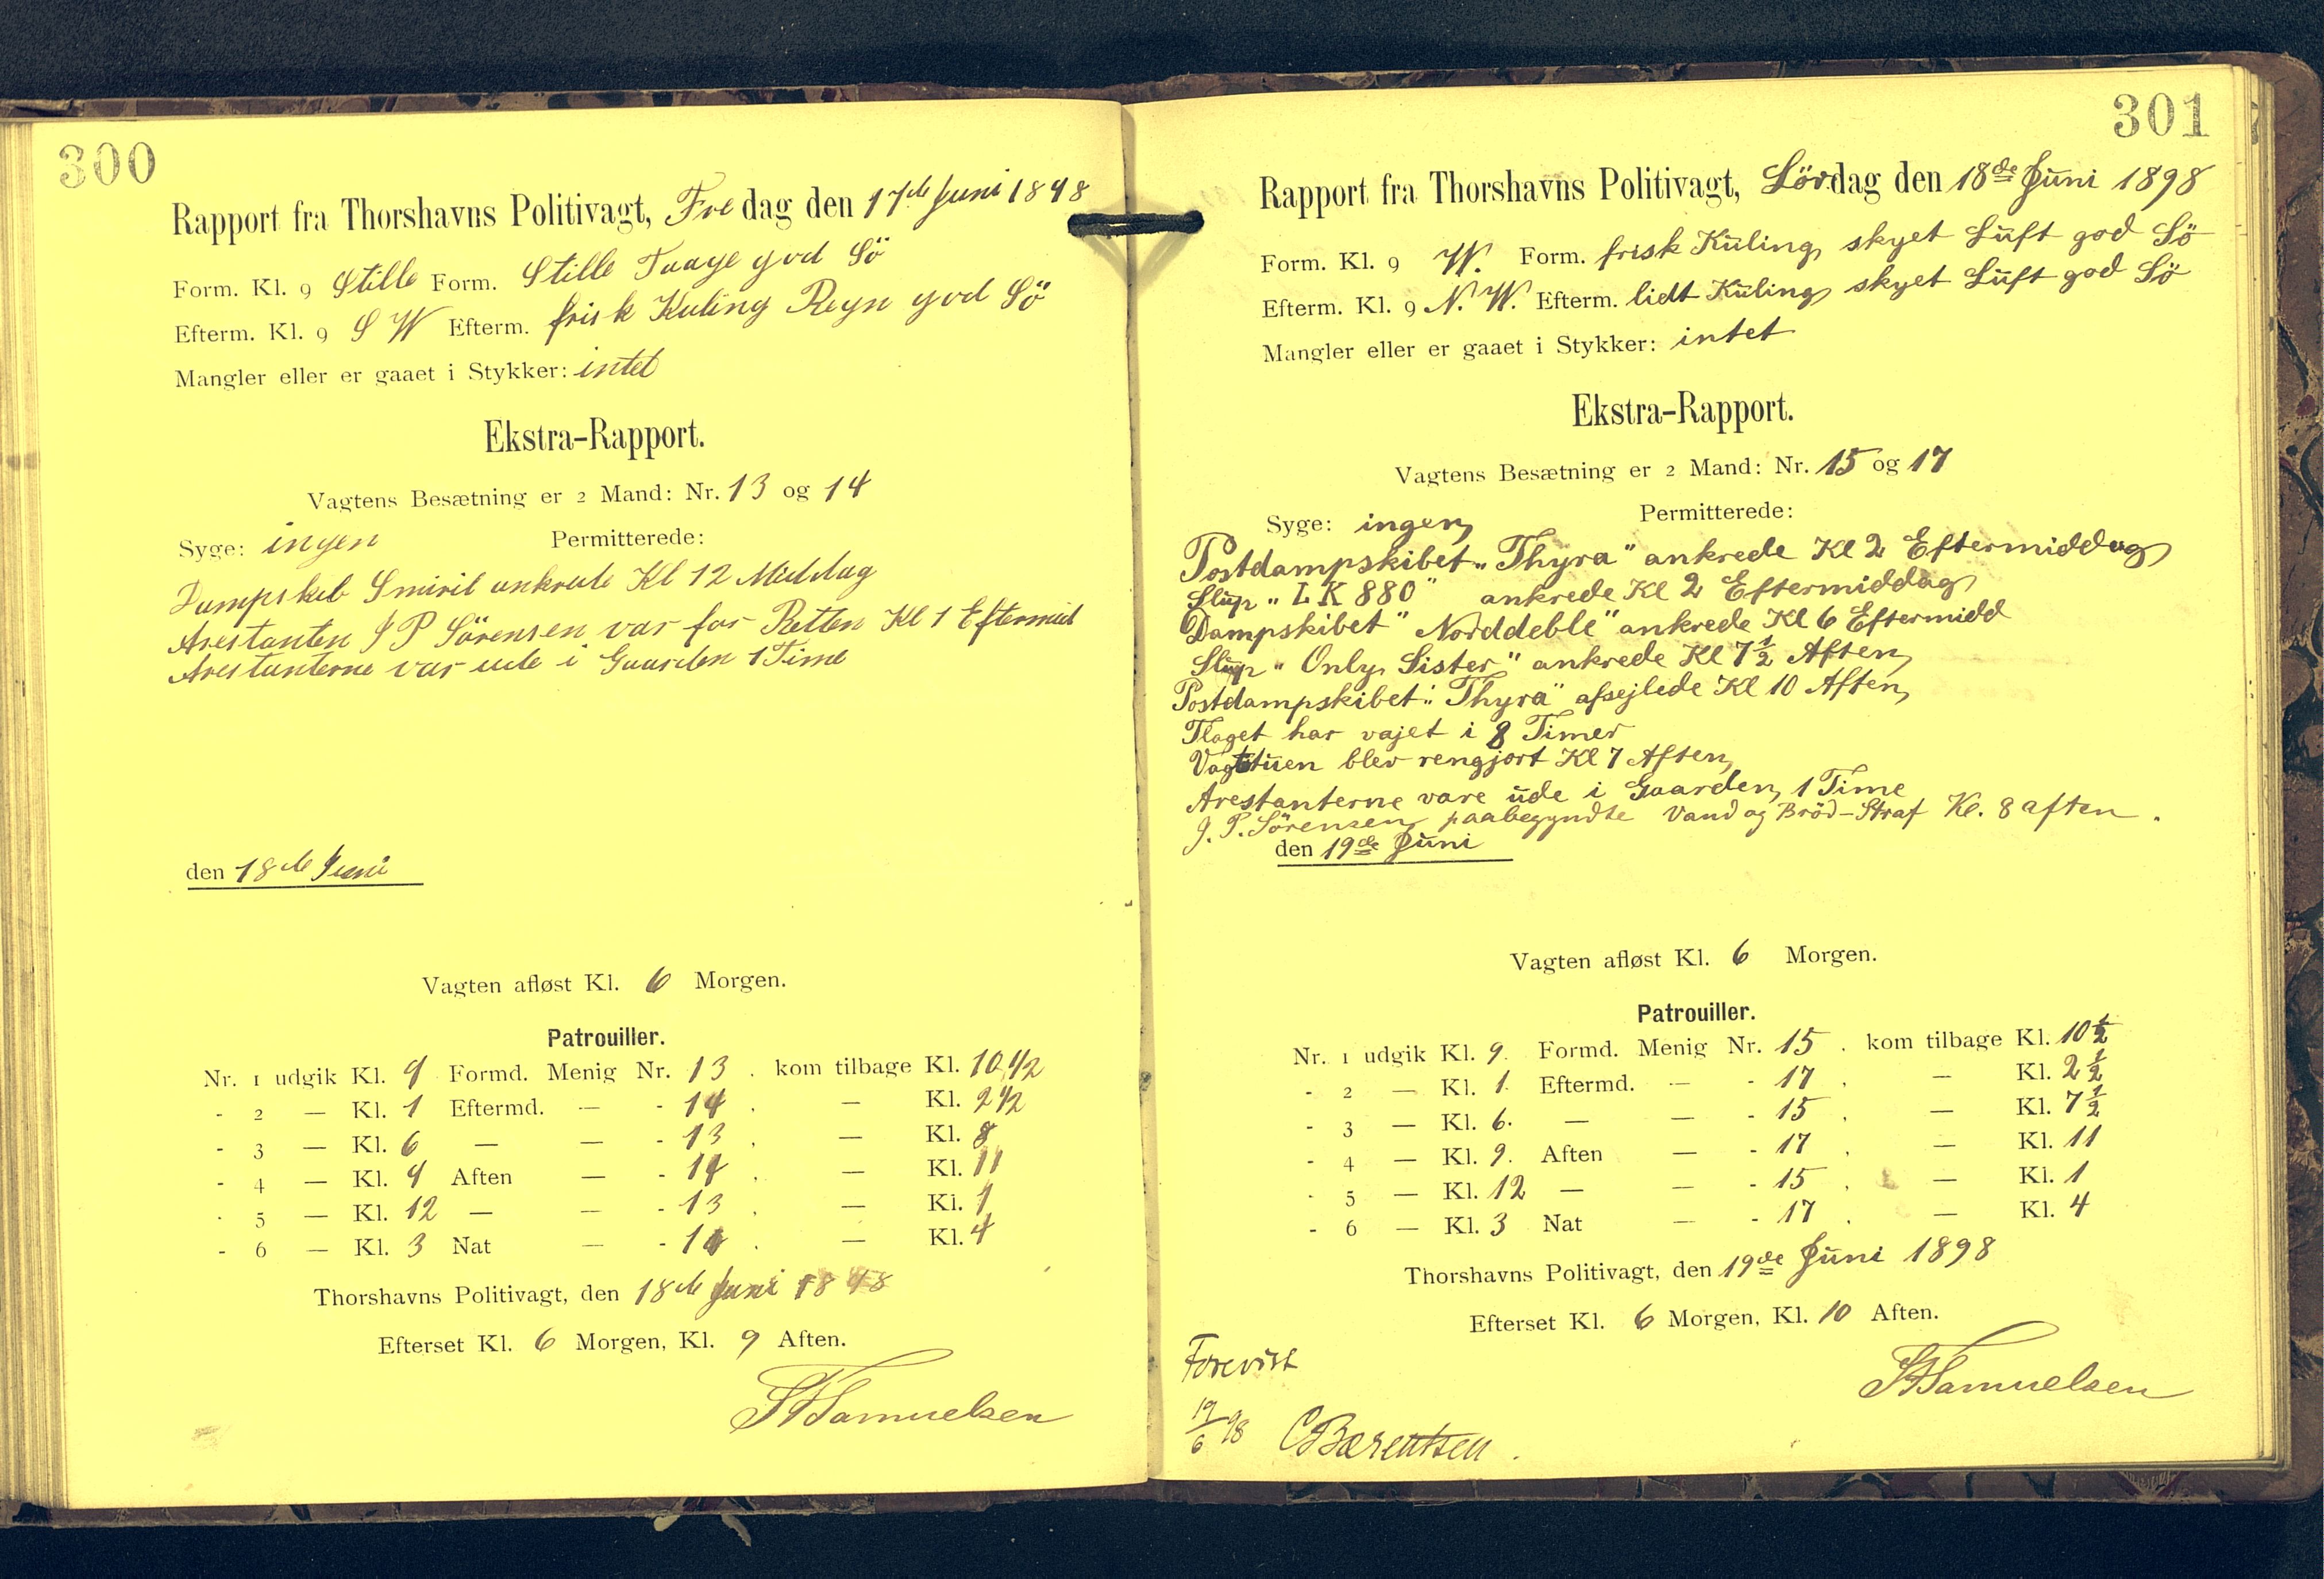 300
Rapport fra Thorshavns Politivagt, Fredag den 17de Juni 1898
Form. Kl. 9 Stille Form. Stille Taage god Sö
Efterm. Kl. 9 S W Efterm. frisk Kuling Regn god Sö
Mangler eller er gaaet i Stykker: intet
Ekstra-Rapport.
Vagtens Besætning er 2 Mand: Nr. 13 og 14
Syge: ingen Permitterede:
Dampskib Smiril ankrede Kl 12 Middag
Arestanten J P Sörensen var for Retten Kl 1 Eftermid
Arestanterne var ude i Gaarden 1 Time
den 18de Juni
Vagten afløst Kl. 6 Morgen.
Patrouiller.
Nr. 1 udgik Kl. 9 Formd. Menig Nr. 13 . kom tilbage Kl. 10 1/2
- 2 — Kl. 1 Eftermd. — - 14 . — Kl. 2 1/2
- 3 — Kl. 6 — — - 13 . — Kl. 8
- 4 — Kl. 9 Aften — - 14 . — Kl. 11
- 5 — Kl. 12 — — - 13 . — Kl. 1
- 6 — Kl. 3 Nat — - 14 . — Kl. 4
Thorshavns Politivagt, den 18de Juni 1898
Efterset Kl. 6 Morgen, Kl. 9 Aften.
Samuelsen
301
Rapport fra Thorshavns Politivagt, Lördag den 18de Juni 1898
Form. Kl. 9 W. Form. frisk Küling, skyet Lüft god Sö
Efterm. Kl. 9 N. W. Efterm. lidt Küling skyet Lüft god Sö
Mangler eller er gaaet i Stykker: intet
Ekstra-Rapport.
Vagtens Besætning er 2 Mand: Nr. 15 og 17
Syge: ingen Permitterede:
Postdampskibet „Thyra" ankrede Kl 2 Eftermiddag
Slüp „LK 880" ankrede Kl 2 Eftermiddag
Dampskibet "Norddeble" ankrede Kl 6 Eftermidd
Slüp „Only Sister" ankrede Kl 7 1/2 Aften
Postdampskibet „Thyra" afsejlede Kl 10 Aften
Flaget har vajet i 8 Timer
Vagtstüen blev rengjort Kl 7 Aften
Arestanterne vare üde i Gaarden 1 Time
J. P. Sörensen paabegyndte Vand og Bröd-Straf Kl. 8 aften.
den 19de Jüni
Vagten afløst Kl. 6 Morgen.
Patrouiller.
Nr. 1 udgik Kl. 9. Formd. Menig Nr. 15 . kom tilbage Kl. 10 1/2
- 2 — Kl. 1. Eftermd. — - 17 . — Kl. 2 1/2
- 3 — Kl. 6. — — - 15 . — Kl. 7 1/2
- 4 — Kl. 9. Aften — - 17 . — Kl. 11
- 5 — Kl. 12 — — - 15 . — Kl. 1
- 6 — Kl. 3 Nat — - 17 . — Kl. 4
Thorshavns Politivagt, den 19de Jüni 1898
Efterset Kl. 6 Morgen, Kl. 10 Aften.
Samuelsen
Forevist
19/6 98 CBærentsen.